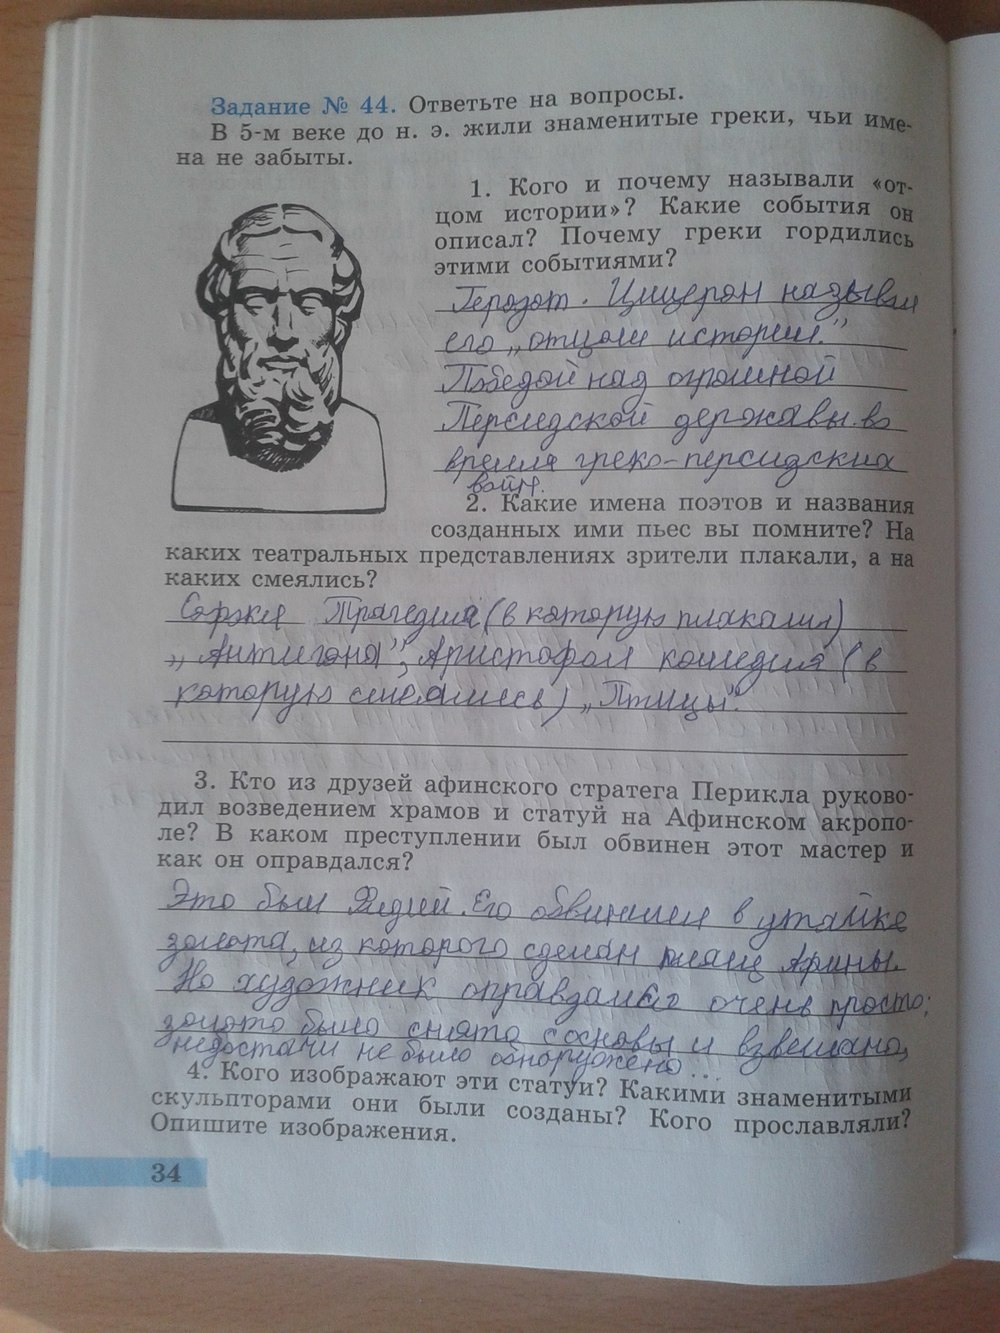 Задание № 44. Ответьте на вопросы.
В 5-м веке до н. э. жили знаменитые греки, чьи име-
на не забыты.
1. Кого и почему называли «от-
цом истории»? Какие события он
описал? Почему греки гордились
этими событиями?
Геродот. Цицерон называл
его „отцом истории."
Победой над огромной
Персидской державы во
время греко-персидских
войн.
2. Какие имена поэтов и названия
созданных ими пьес вы помните? На
каких театральных представлениях зрители плакали, а на
каких смеялись?
Софокл Трагедия (в которую плакали)
„Антигона", Аристофан комедия (в
которую смеялись) „Птицы".
3. Кто из друзей афинского стратега Перикла руково-
дил возведением храмов и статуй на Афинском акропо-
ле? В каком преступлении был обвинен этот мастер и
как он оправдался?
Это был Фидий. Его обвинили в утайке
золота, из которого сделан плащ Афины.
Но художник оправдался очень просто:
золото было снято с основы и взвешано,
недостачи не было обнаружено...
4. Кого изображают эти статуи? Какими знаменитыми
скульпторами они были созданы? Кого прославляли?
Опишите изображения.
34